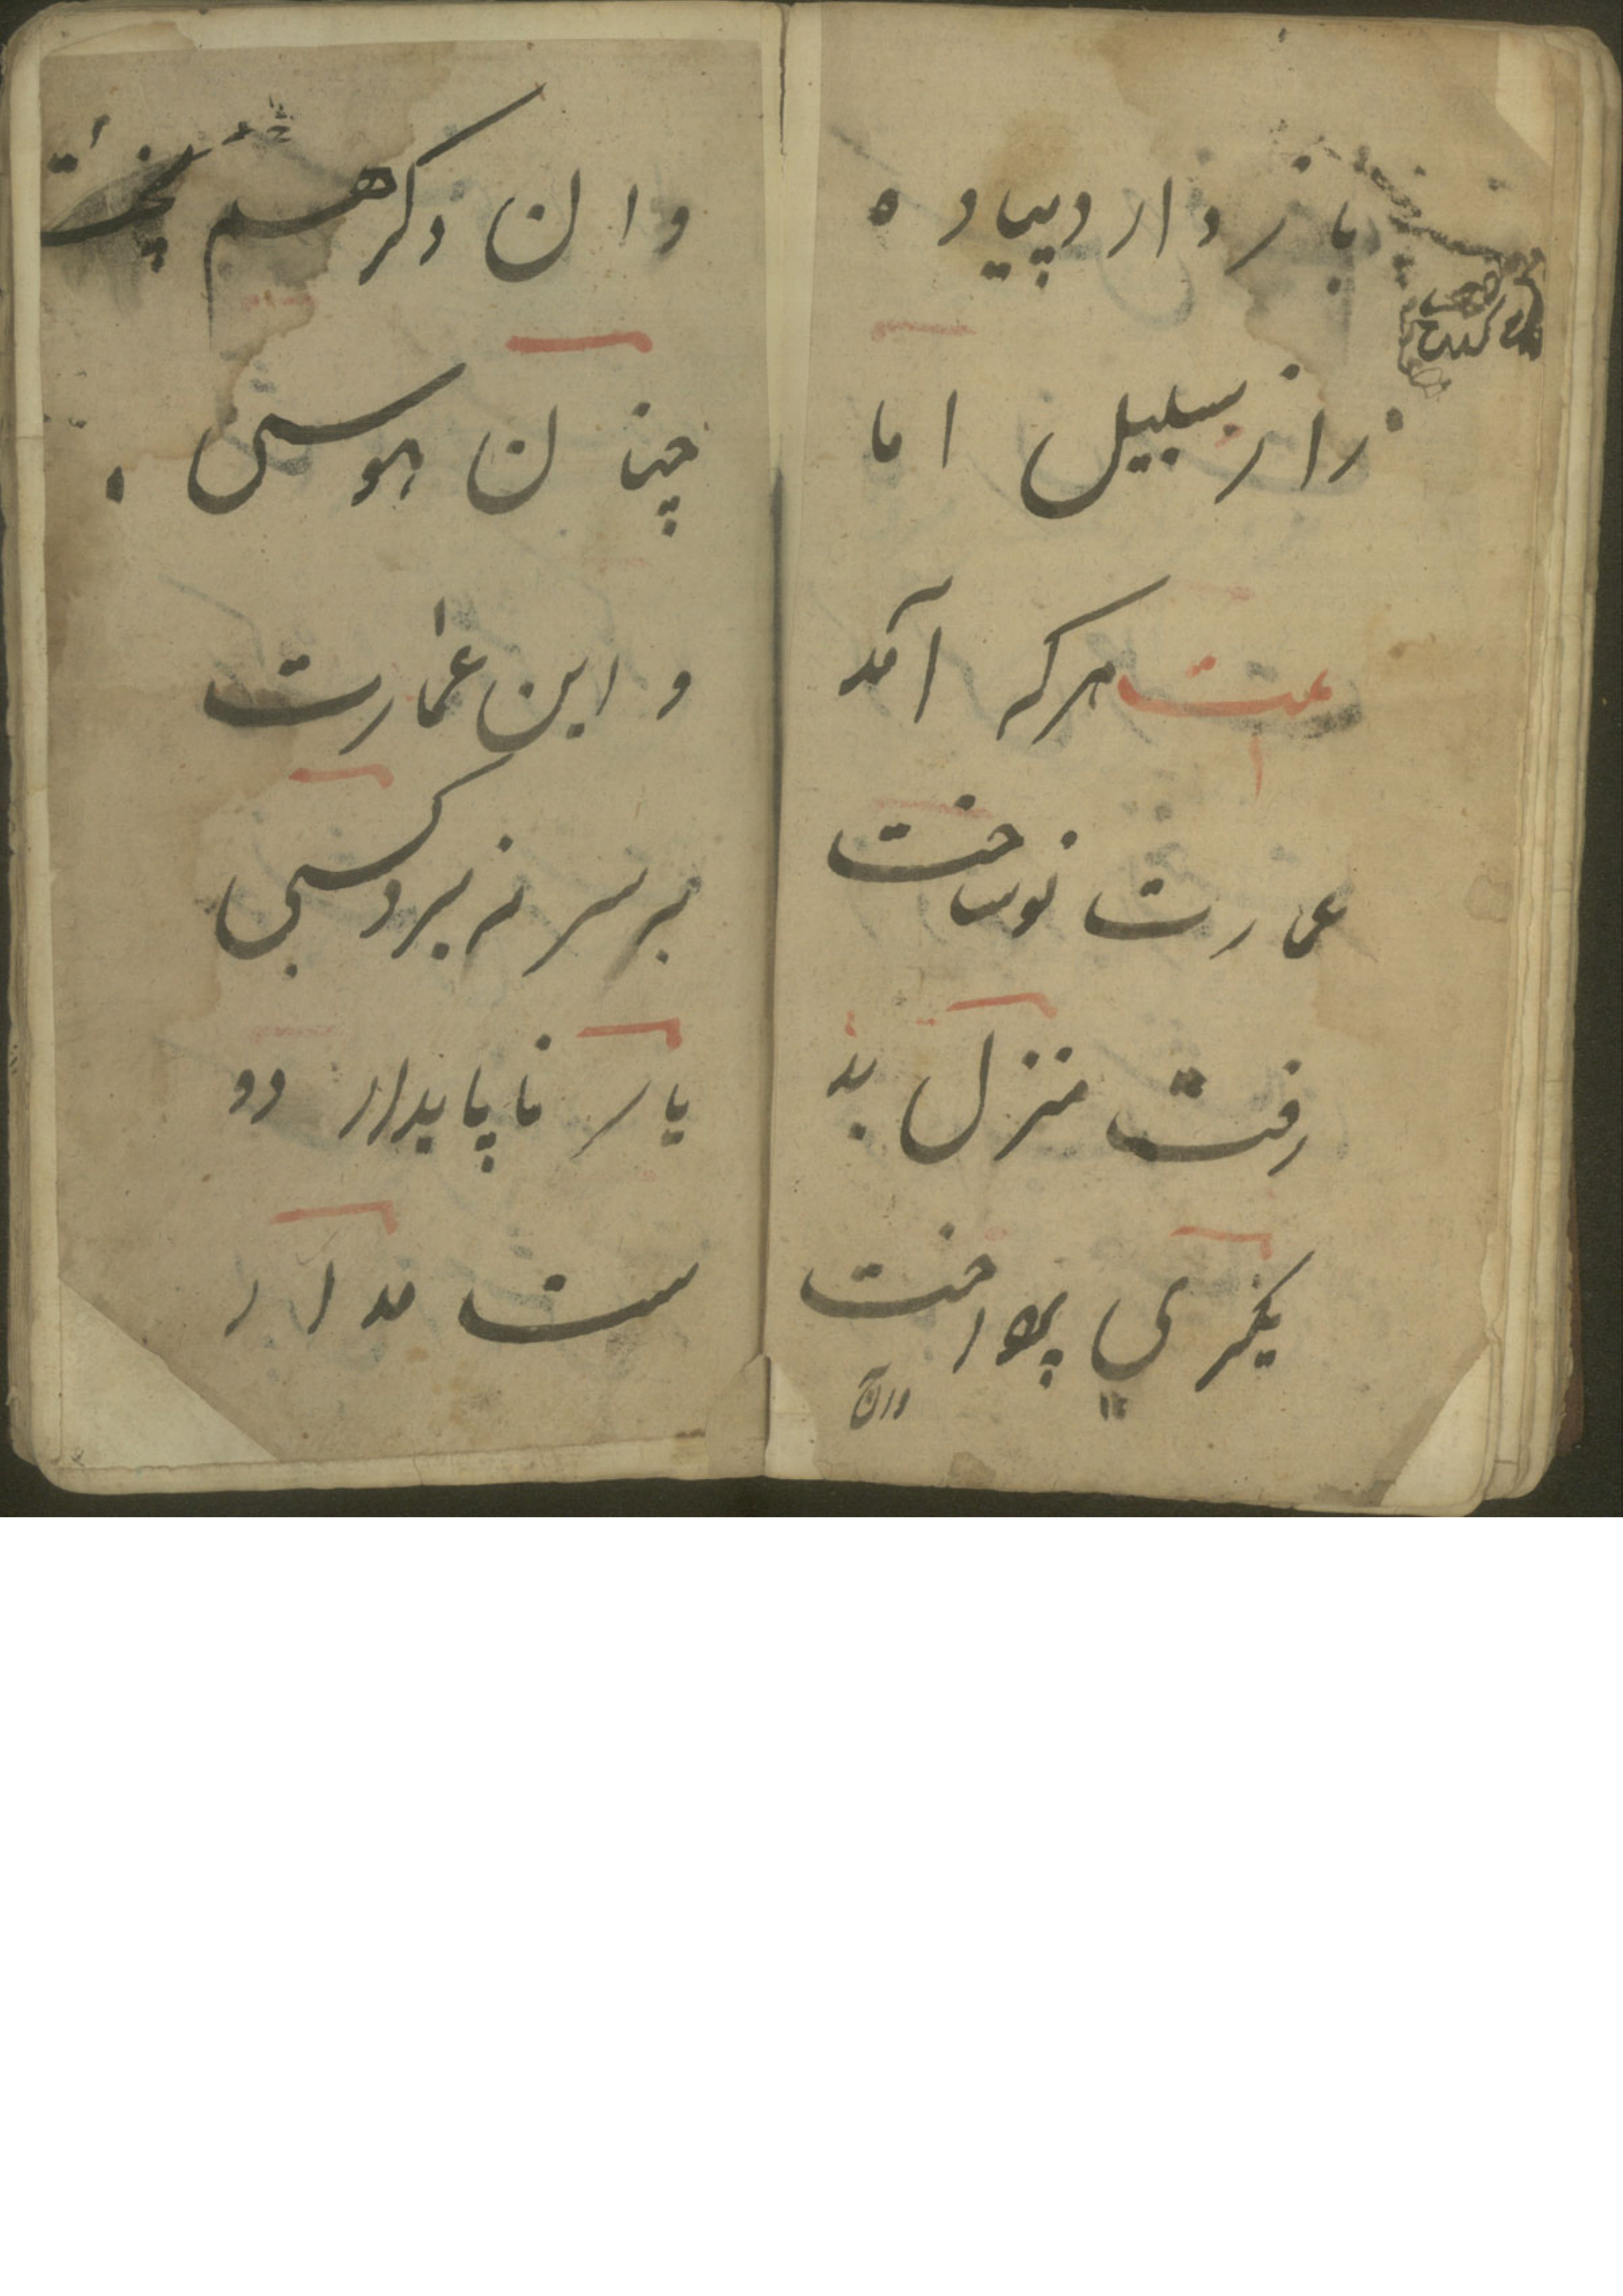 باز دارد پیاده
را ز سبیل اما
بیت هر که آمد
عمارت نو ساخت
رفت منزل بد
یکری پرداخت
وران
وان دگر هم پخت
چنان هوسی
واین عمارت
بر سر نه برد کسی
یار ناپایدار دو
ست مدار